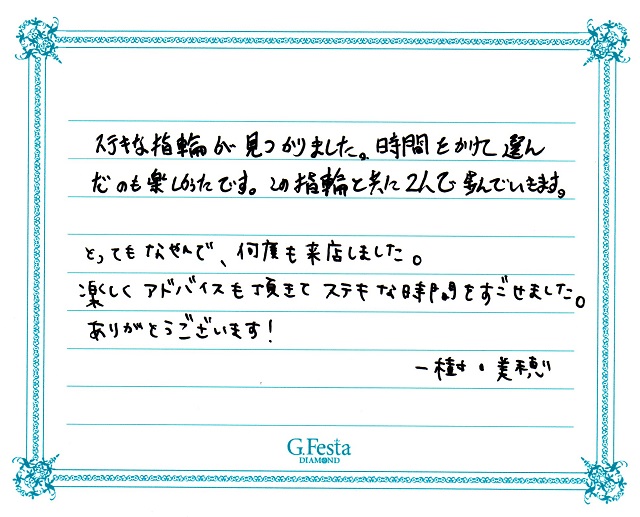 ステキな指輪が見つかりました。時間をかけて選ん
だのも楽しかったです。この指輪と共に2人で歩んでいきます。
とってもなやんで、何度も来店しました。
楽しくアドバイスも頂きてステキな時間をすごせました。
ありがとうございます!
一樹・美穂
G.Festa
DIAMOND